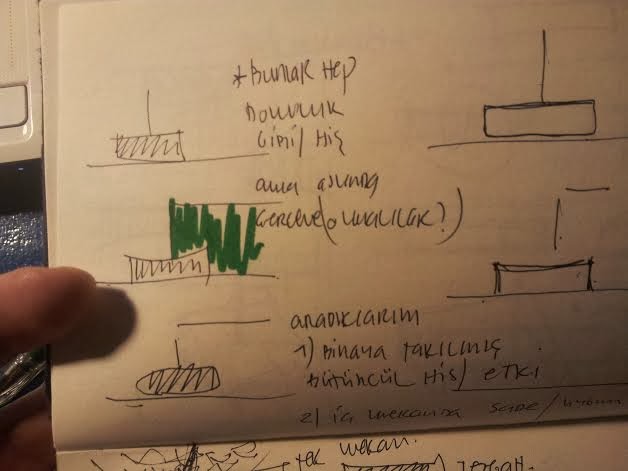 * BUNLAR HEP
DOLULUK
GİBİ/HİS
AMA ASLINDA
ÇERÇEVE(
OLMALILAR?)
ARADIKLARIM
1) BİNAYA TAKILMIŞ
BÜTÜNCÜL HİS/ ETKİ
2) İÇ MEKANDA SADE/
TEK MEKAN.